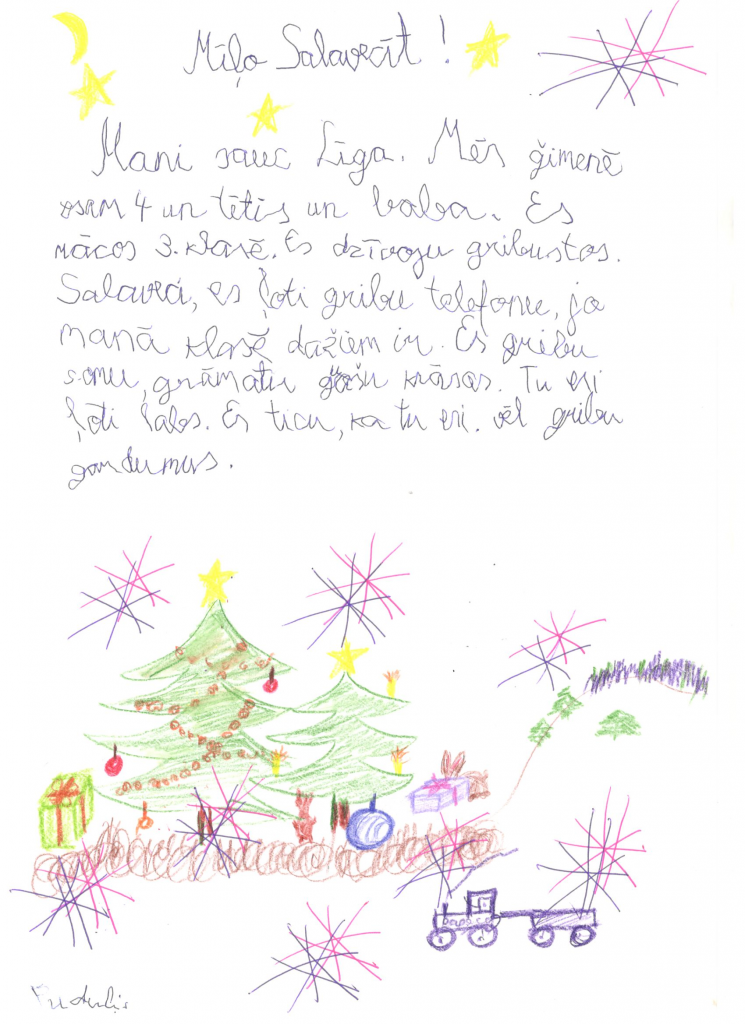 Mīļo Salavecīt!
Mani sauc Līga. Mēs ģimenē
esam 4 un tētis un baba. Es
mācos 3. klasē. Es dzīvoju gribustos.
Salavecī, es ļoti gribu telefonu, jo
manā klasē dažiem ir. Es gribu
somu, grāmatu gašu krāsas. Tu esi
ļoti labs. Es ticu, ka tu esi. vēl gribu
gardumus.